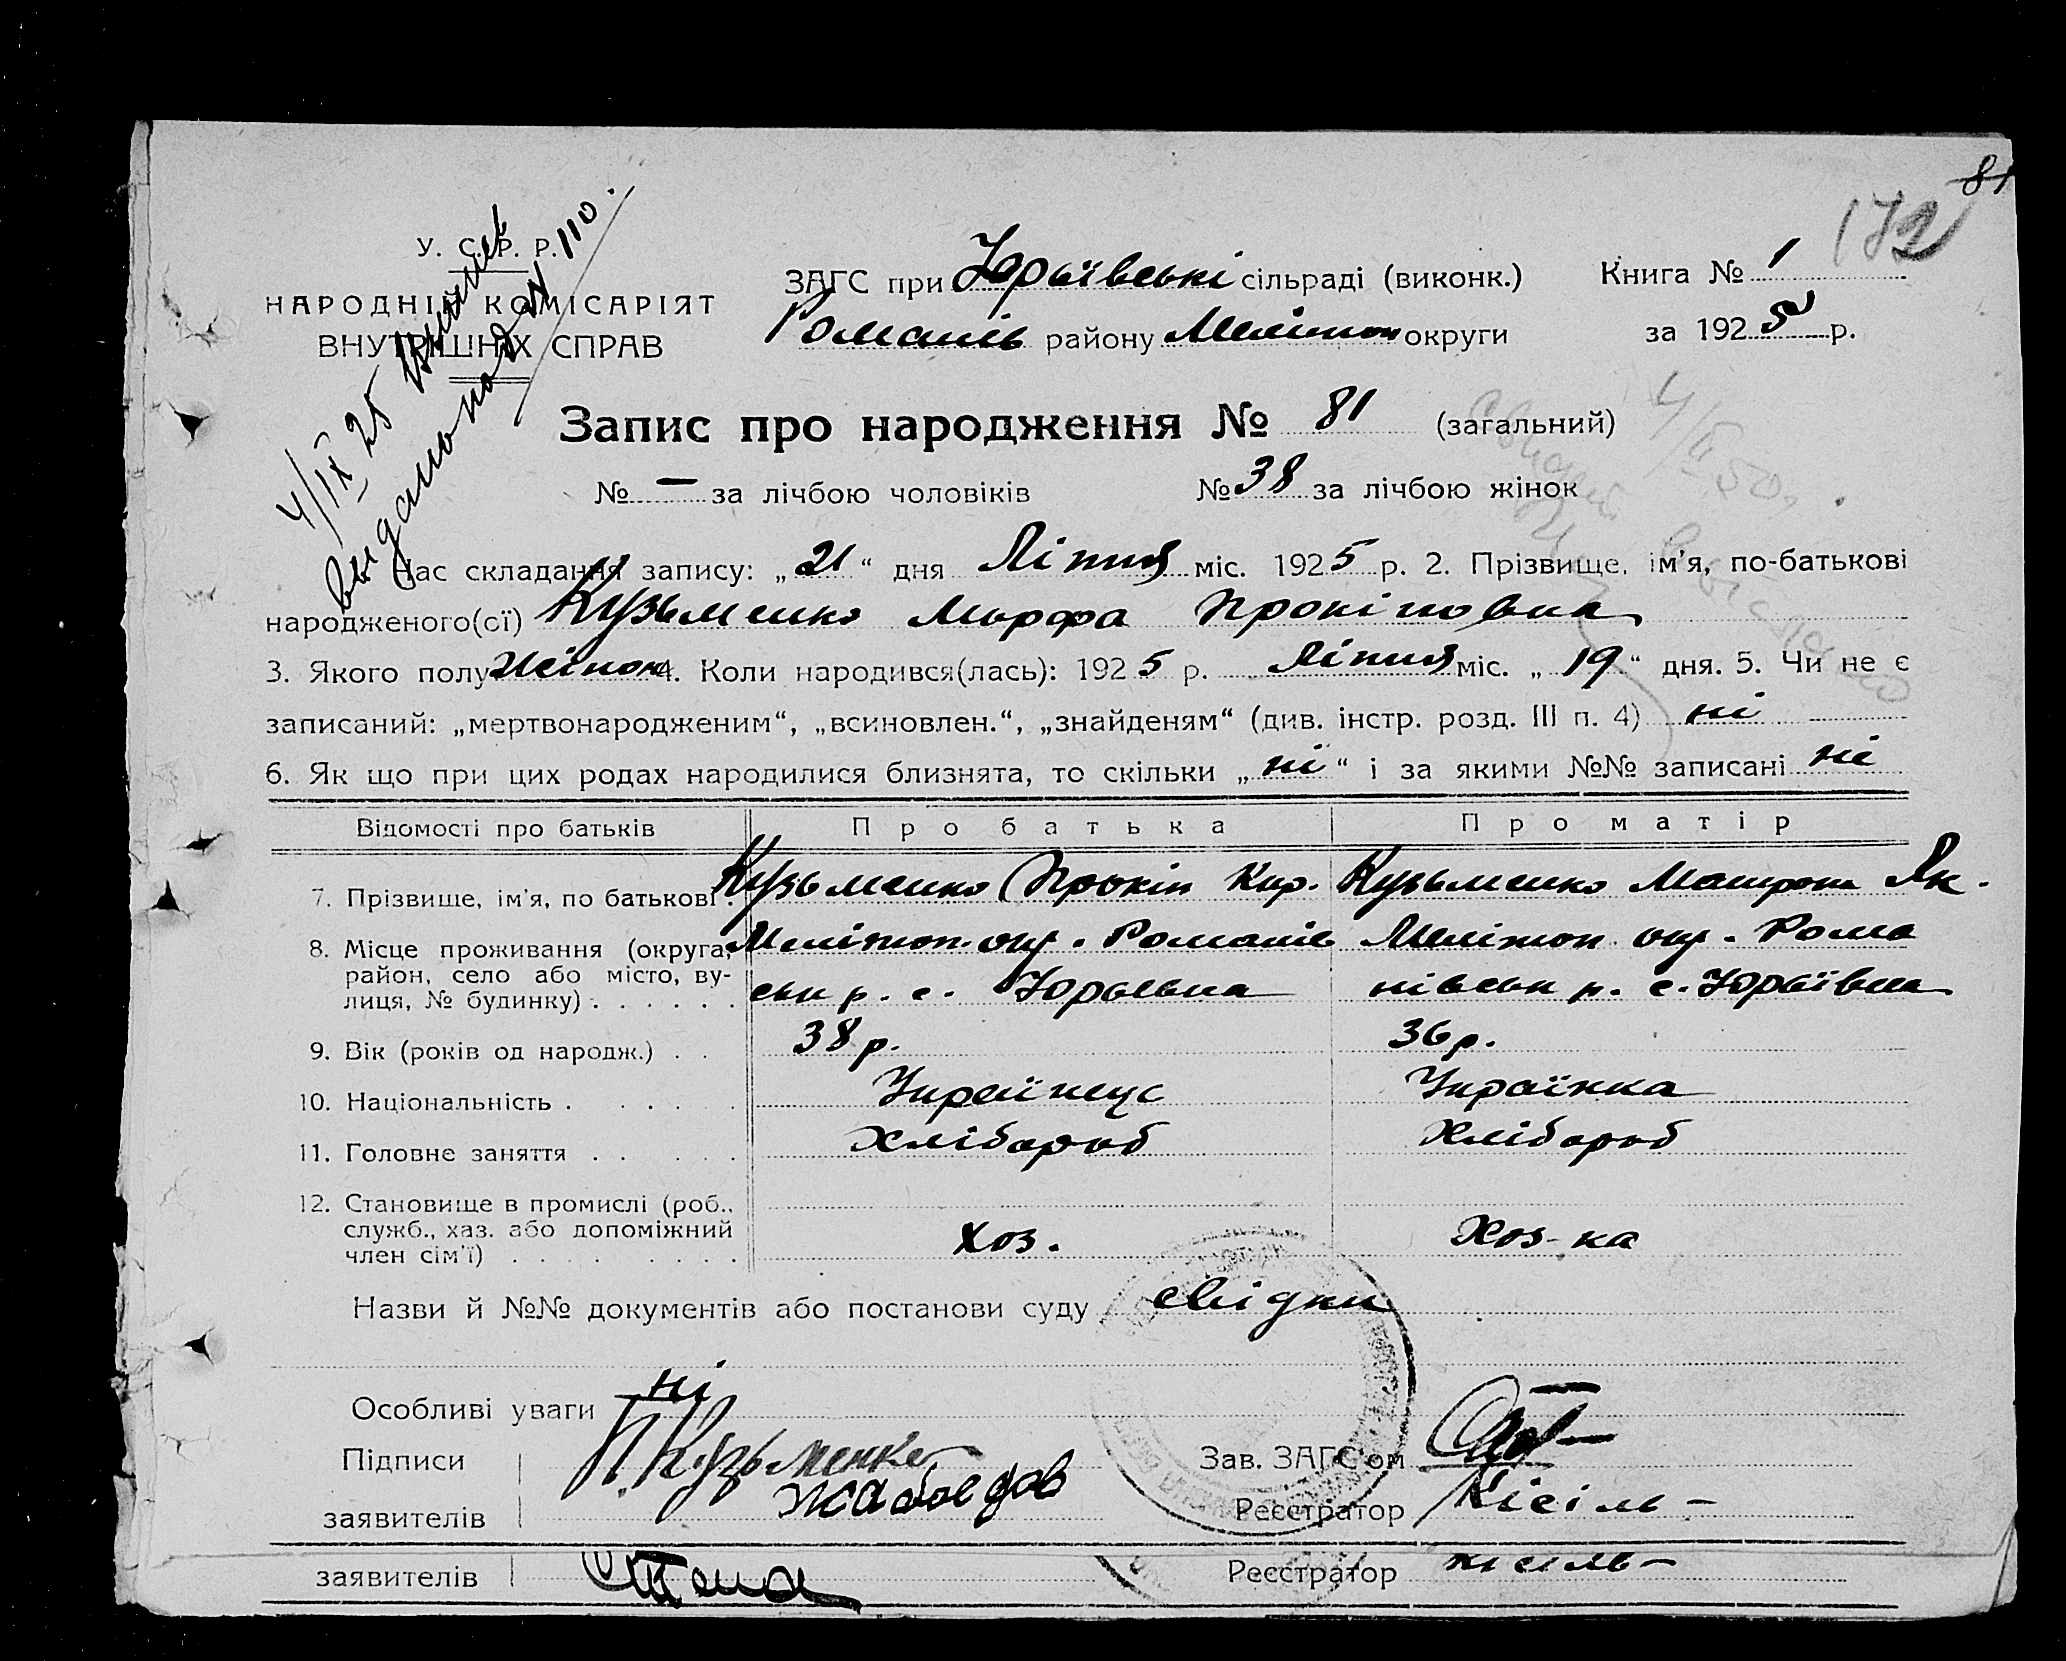 81
172
У. С. Р. Р.
НАРОДНІЙ КОМІСАРІЯТ
ВНУТРІШНІХ СПРАВ
4/IX 25 Выписек
выдано под № 110.
ЗАГС при Юрьївські сільраді (виконк.)
Романів району Мелітоп округи
Книга № 1
за 1925 р.
Запис про народження № 81 (загальний)
№ — за лічбою чоловіків № 38 за лічбою жінок
Час складання запису: „21“ дня Ліпня міс. 1925 р. 2. Прізвище, ім'я, по-батькові
народженого(сї) Кузьменко Марфа Прокіповна
3. Якого полу Жіноч 4. Коли народився(лась): 1925 р. Ліпня міс. „19“ дня. 5. Чи не є
записаний: „мертвонародженим“, „всиновлен.“, „знайденям“ (див. інстр. розд. III п. 4) ні
6. Як що при цих родах народилися близнята, то скільки „ні“ і за якими №№ записані ні
Відомості про батьків Про батька Про матір
7. Прізвище, ім'я, по батькові . Кузьменко Прокіп Кир. Кузьменко Мотрона Як.
8. Місце проживання (округа, район, село або місто, вулиця, № будинку) . . . . . .
Мелітоп. окр. Романів
ськ р. с. Юрьевка
Мелітоп. окр. Рома
нівськ р. с. Юрьївка
9. Вік (років од народж.) . . 38 р. 36 р.
10. Національність . . . . . Українець Українка
11. Головне заняття . . . . . Хлібороб Хлібороб
12. Становище в промислі (роб., служб., хаз. або допоміжний член сім'ї) . . . . . . . .
Хоз. Хоз-ка
Назви й №№ документів або постанови суду свідки
Особливі уваги ні
Підписи П Кузьменко Зав. ЗАГС'ом
Жабоедов
заявителів Реєстратор Кісіль -
заявителів Реєстратор